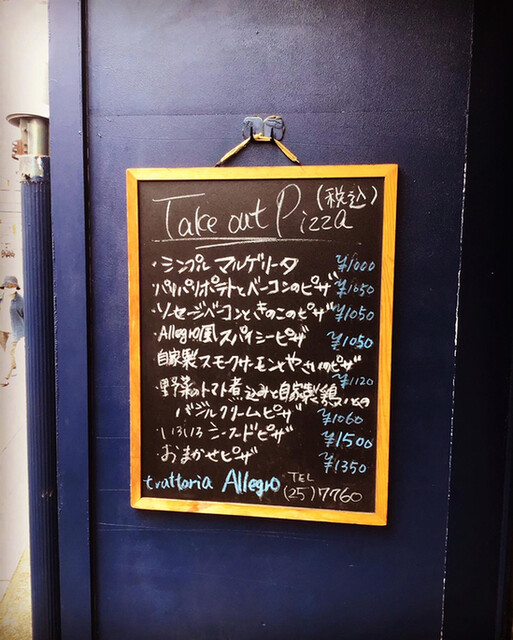 Take out Pizza (税込)
・シンプル マルゲリータ ¥1000
・パリパリポテトとベーコンのピザ ¥1050
・ソーセージベーコンときのこのピザ ¥1050
・Allegro風 スパイシーピザ ¥1050
・自家製スモークサーモンとやさいのピザ ¥1120
・野菜のトマト煮込みと自家製鶏ハムの
バジルクリームピザ ¥1060
・いろいろシーフードピザ ¥1500
・おまかせピザ ¥1350
trattoria Allegro TEL
(25)7760